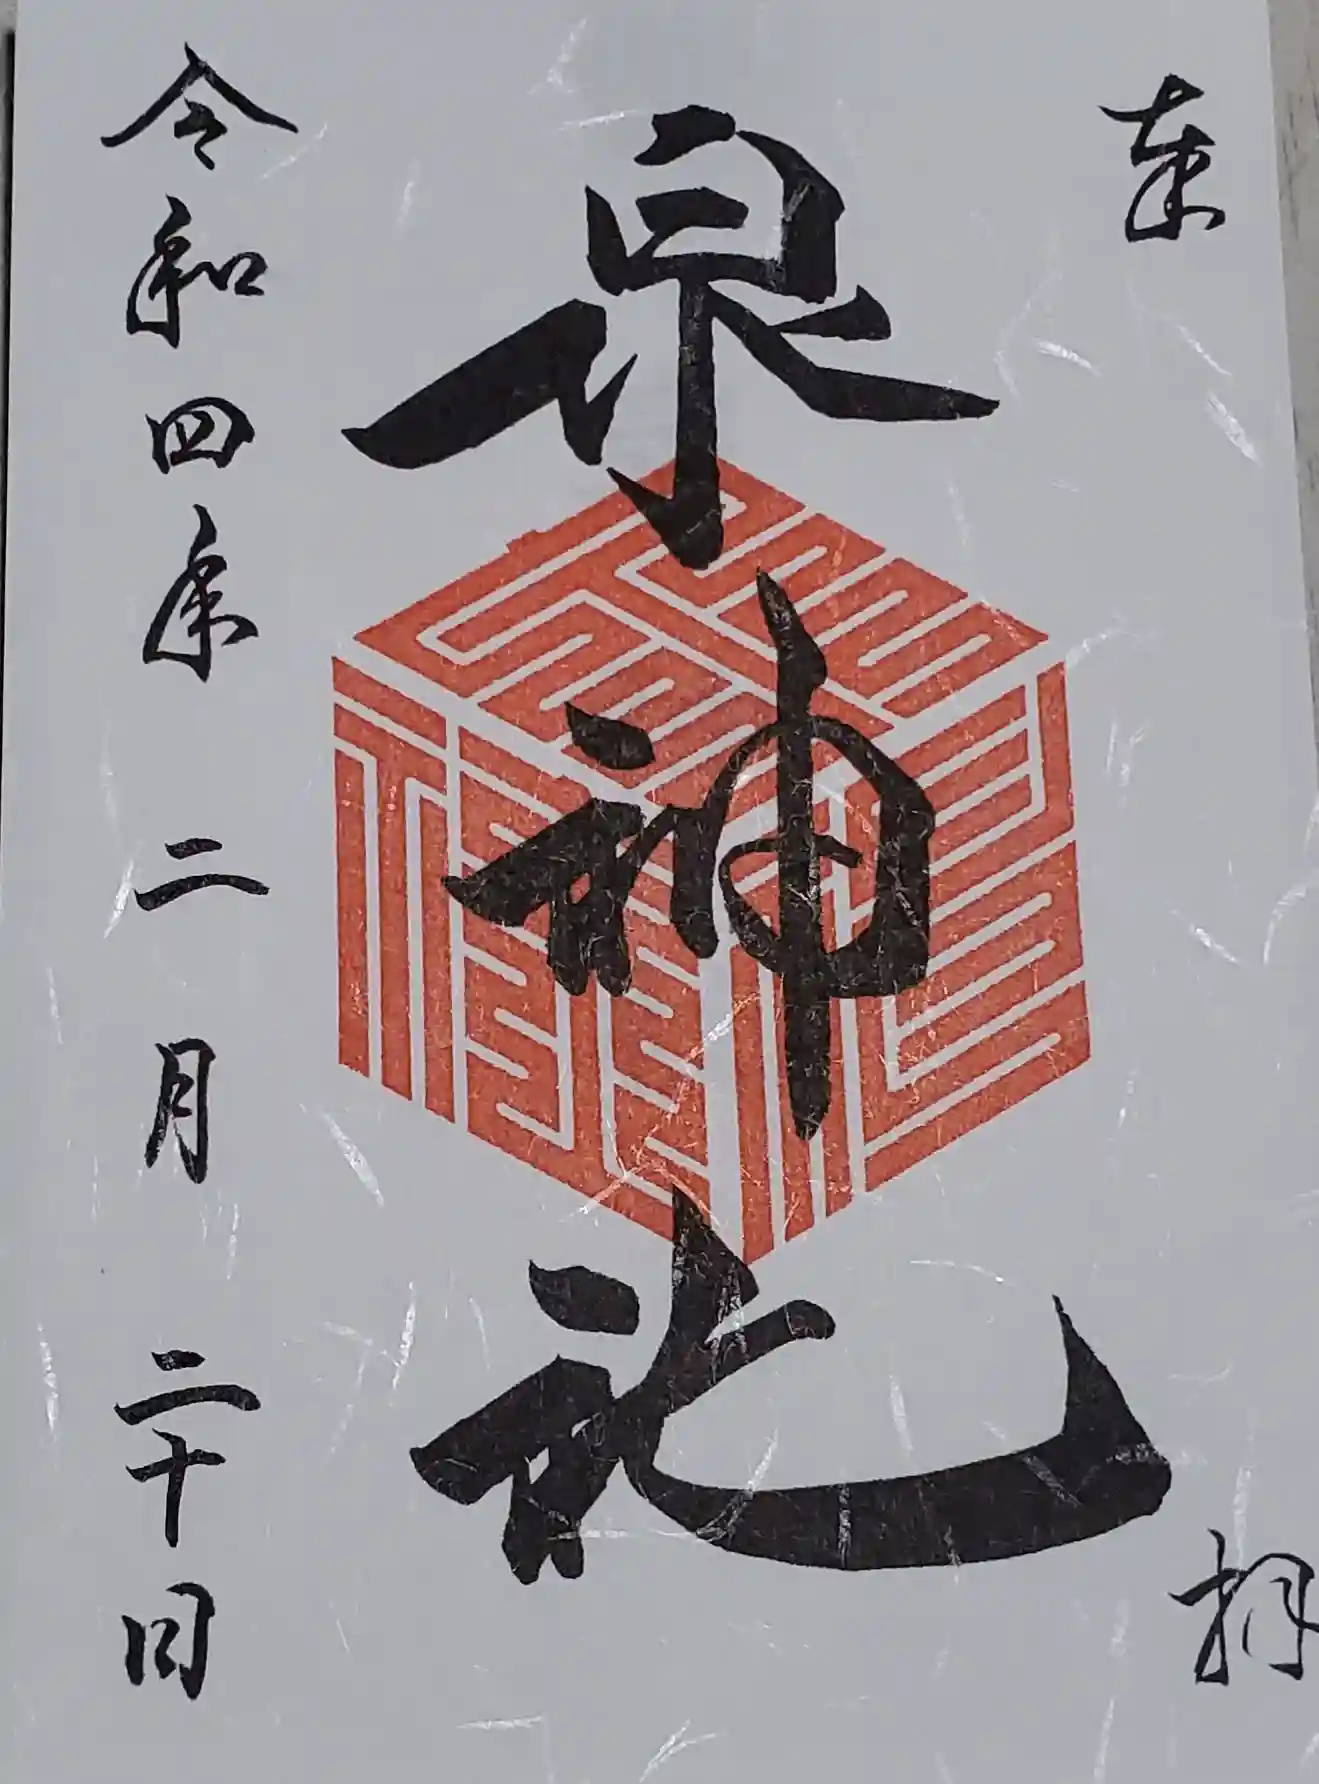 奉拝
泉神社
令和四年二月二十日